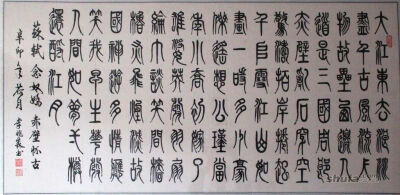 大江東去浪淘
盡千古風流人
物故壘西邊人
道是三國周郎
赤壁亂石
驚濤岸捲起
千堆雪江山如
畫一時多少豪
傑遙想公瑾當
年小喬初嫁了
雄姿英發羽扇
綸巾談笑間檣
櫓灰飛煙滅故
國神遊多情應
笑我早生華髮
人生如夢一樽
還酹江月
蘇軾念奴嬌赤壁懷古
辛卯年荷月李書